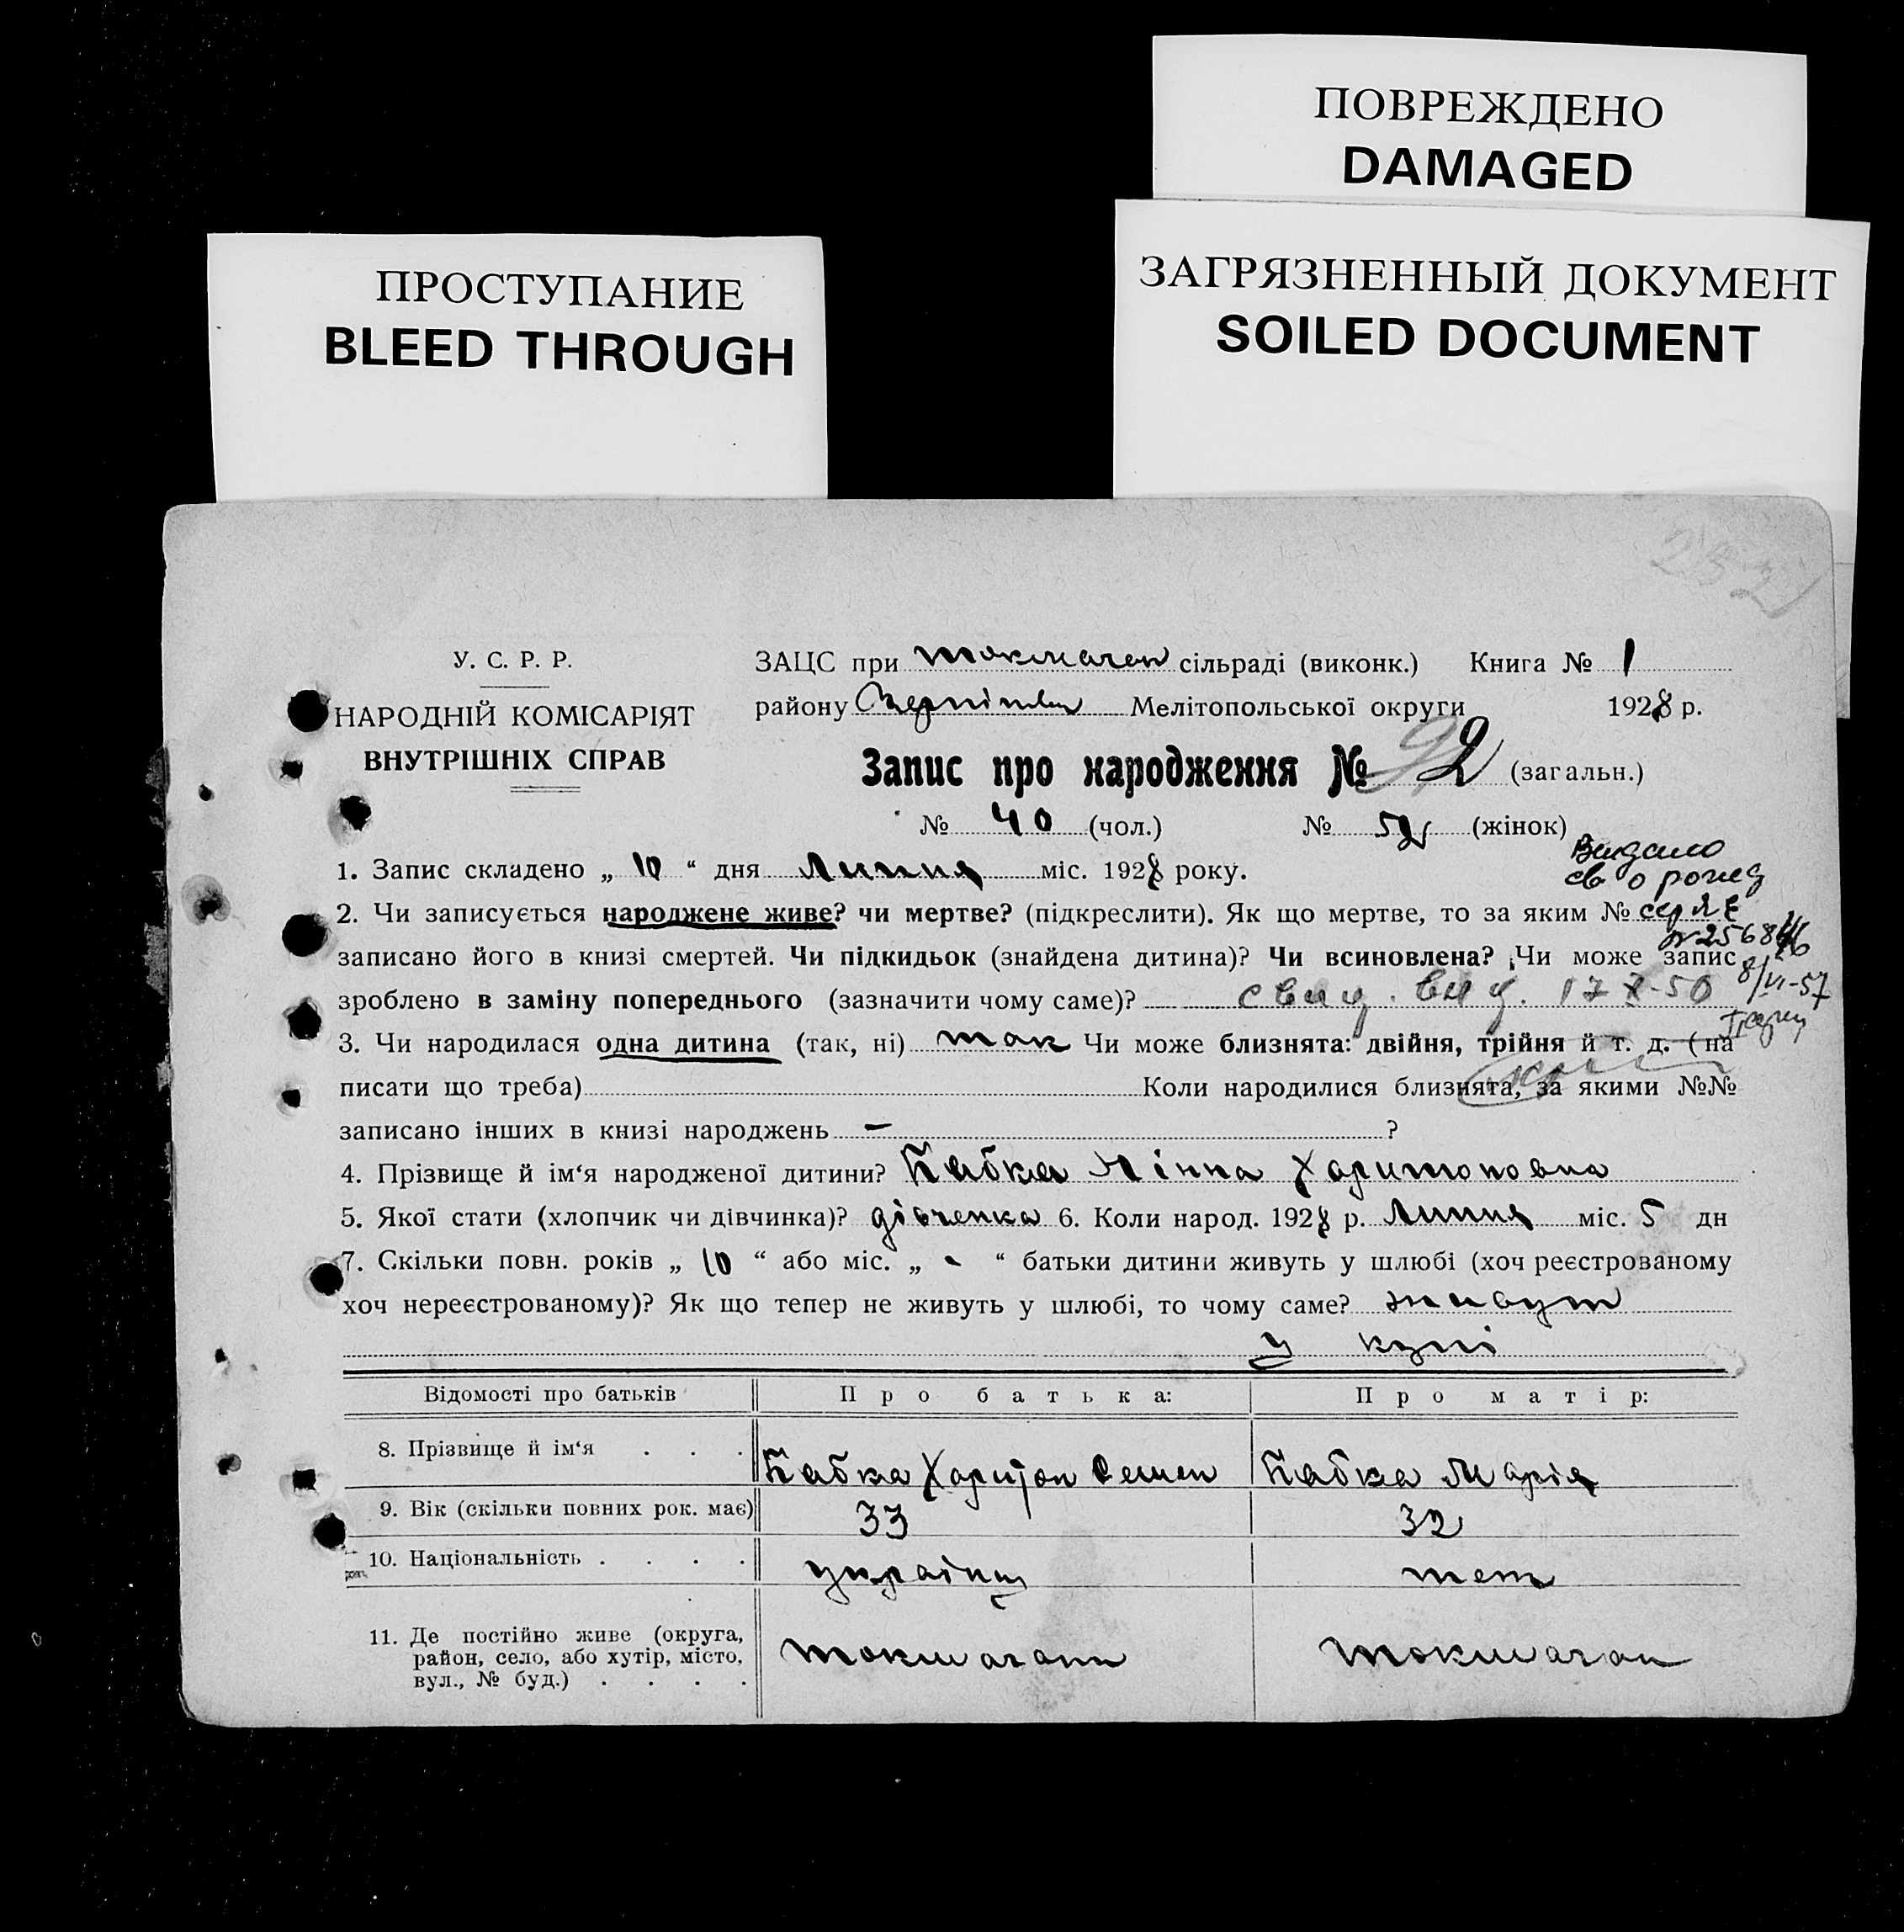 ПОВРЕЖДЕНО
DAMAGED
ПРОСТУПАНИЕ
BLEED THROUGH
ЗАГРЯЗНЕННЫЙ ДОКУМЕНТ
SOILED DOCUMENT
232
У. С. Р. Р.
НАРОДНІЙ КОМІСАРІЯТ
ВНУТРІШНІХ СПРАВ
ЗАЦС при сільраді (виконк.) Книга № 1
району Мелітопольської округи 1928 р.
Запис про народження № 92 (загальн.)
№ 40 (чол.) № (жінок)
Видано
св о рожд
1. Запис складено „ 10 “ дня Липня міс. 1928 року.
2. Чи записується народжене живе? чи мертве? (підкреслити). Як що мертве, то за яким №
записано його в книзі смертей. Чи підкидьок (знайдена дитина)? Чи всиновлена? Чи може запис
8/VI-57
зроблено в заміну попереднього (зазначити чому саме)? 17 X-50
3. Чи народилася одна дитина (так, ні) так Чи може близнята: двійня, трійня й т. д. (на
писати що треба) Коли народилися близнята, за якими №№
записано інших в книзі народжень — ?
4. Прізвище й ім‘я народженої дитини? Бабка Нінна Харитоновна
5. Якої стати (хлопчик чи дівчинка)? дівченка 6. Коли народ. 1928 р. Липня міс. 5 дн
7. Скільки повн. років „ 10 “ або міс. „ - “ батьки дитини живуть у шлюбі (хоч реєстрованому
хоч нереєстрованому)? Як що тепер не живуть у шлюбі, то чому саме? живут
у купі
Відомості про батьків Про батька: Про матір:
8. Прізвище й ім‘я . . . Бабка Харитон Семен Бабка Марія
9. Вік (скільки повних рок. має) 33 32
10. Національність . . . . українц теж
11. Де постійно живе (округа,
район, село, або хутір, місто,
вул., № буд.) . . . .